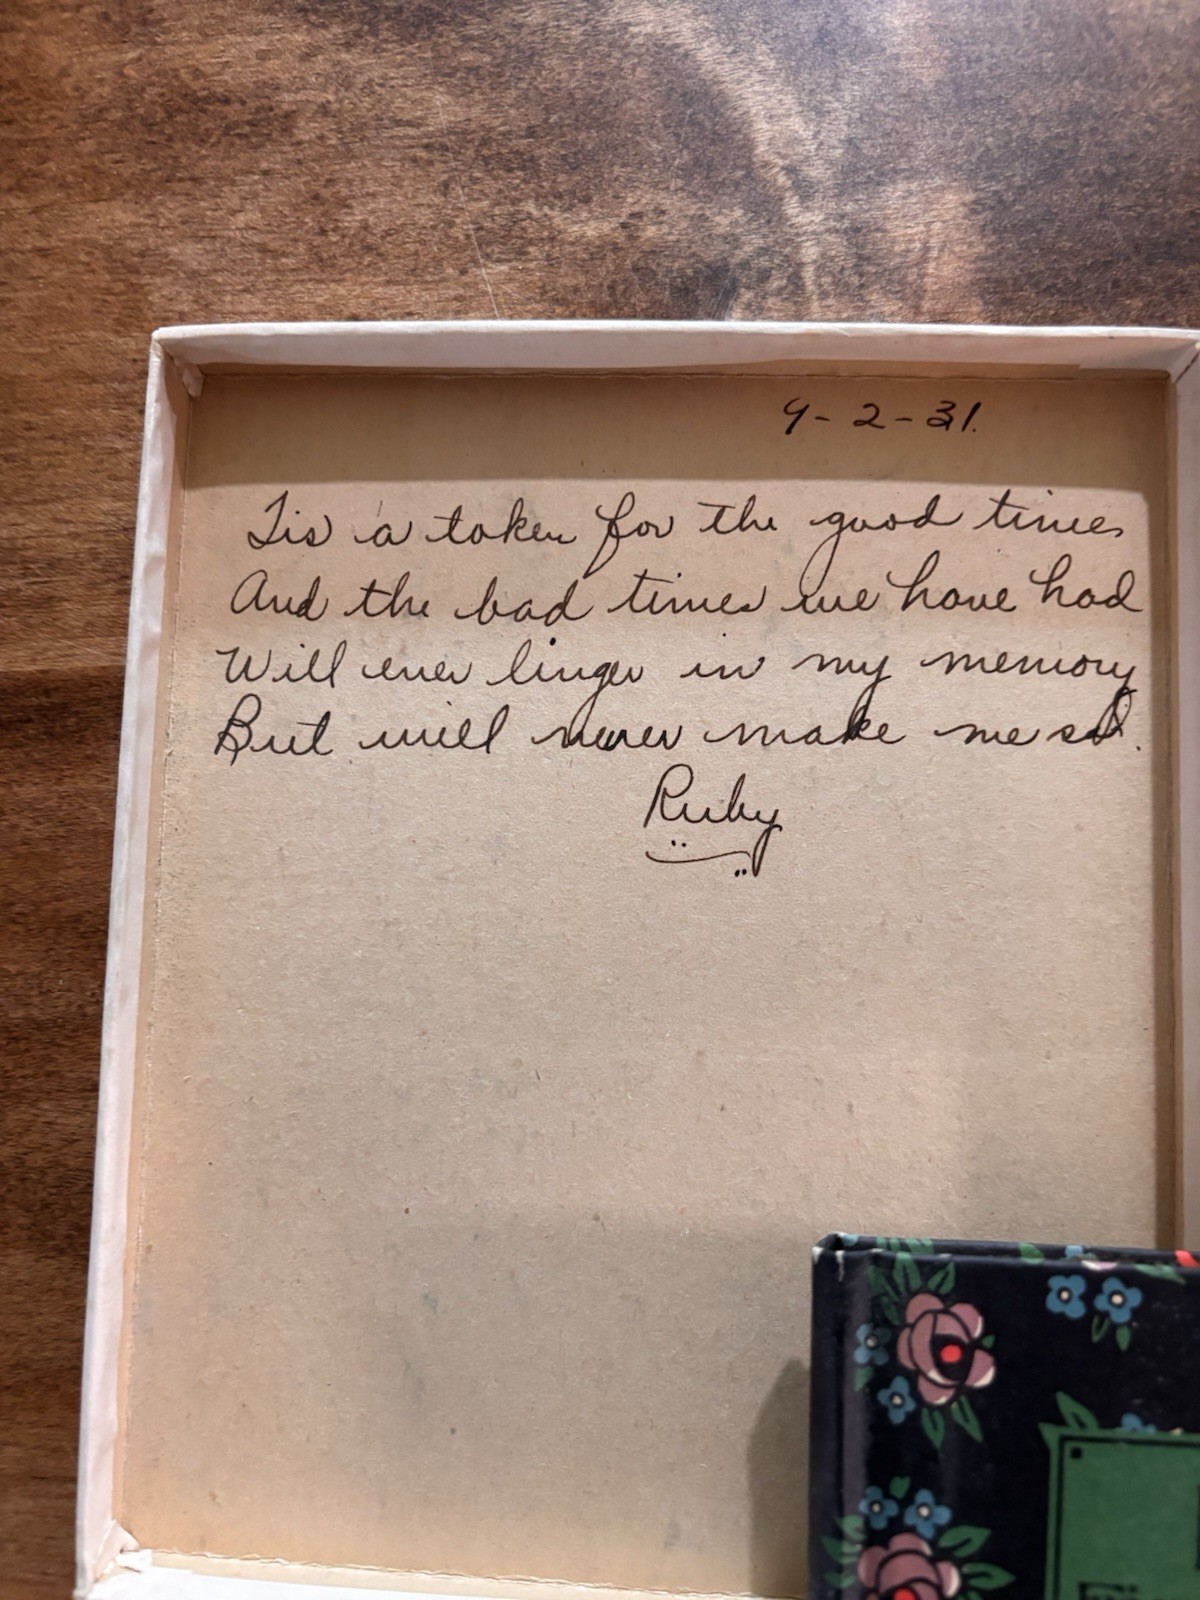 9-2-31.
Tis a token for the good times
And the bad times we have had
Will ever linger in my memory
But will never make me sad.
Ruby